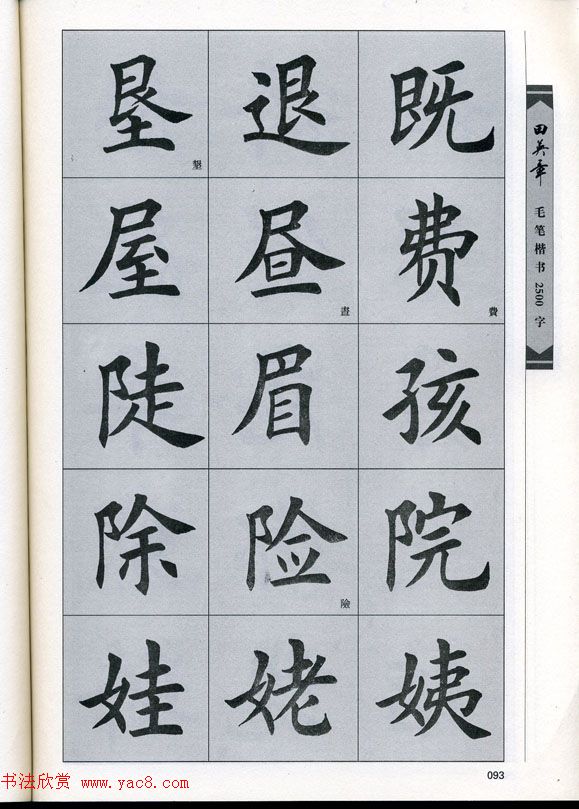 垦 墾 退 既
屋 昼 晝 费 費
陡 眉 孩
除 险 險 院
娃 姥 姨
田英章 毛笔楷书2500字
093
书法欣赏 www.yac8.com